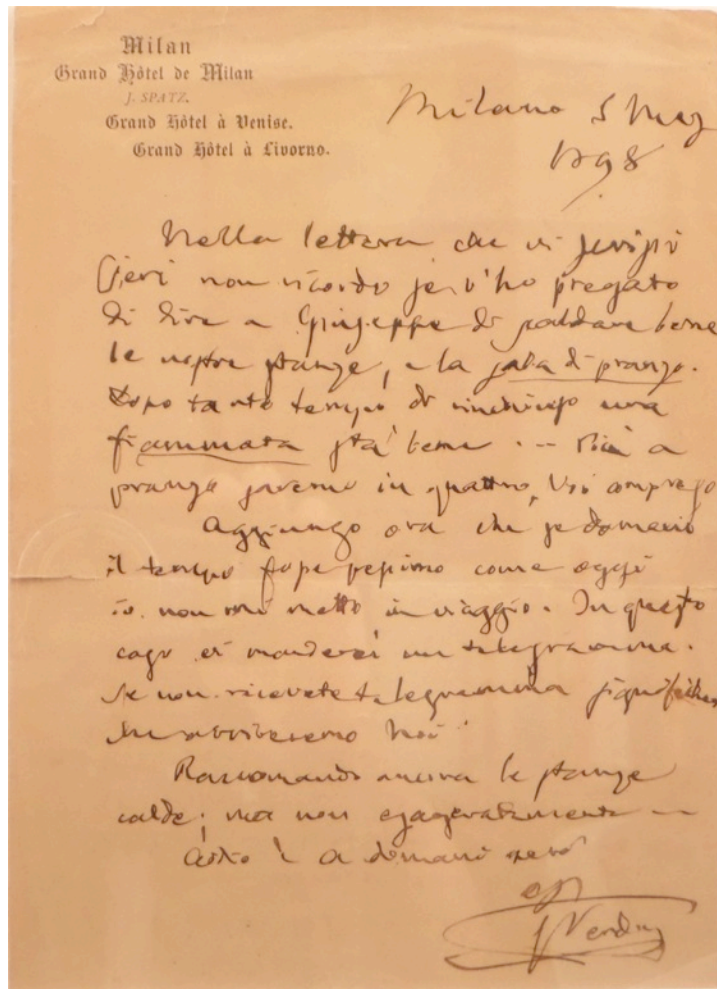 Milan
Grand Hôtel de Milan
J. SPATZ.
Grand Hôtel à Venise.
Grand Hôtel à Livorno.
Milano 5 Mag
1898
Nella lettera che vi scrissi
ieri non ricordo se v'ho pregato
di dire a Giuseppe di scaldare bene
le nostre stanze, e la sala di pranzo.
Dopo tanto tempo di rinchiuso una
fiammata sta bene ... Più a
pranzo saremo in quattro, Voi compreso
Aggiungo ora che se domani
il tempo fosse pessimo come oggi
io non mi metto in viaggio. In questo
caso vi manderei un telegramma.
Se non ricevete telegramma significa
che arriveremo noi
Raccomando ancora le stanze
calde; ma non esageratamente
a domani
G Verdi